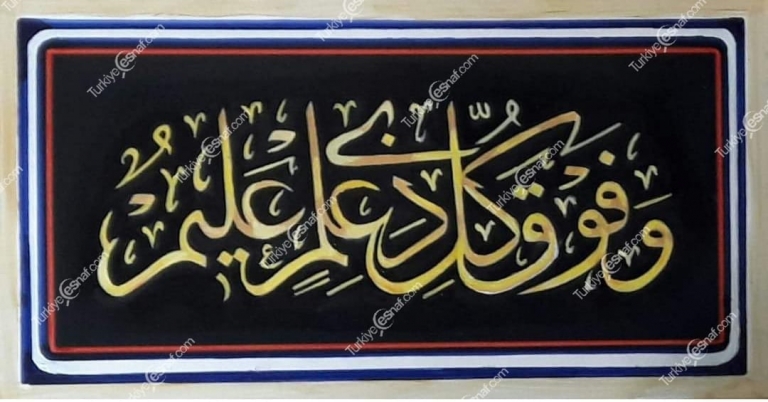 وَفَوْقَ كُلِّ ذِي عِلْمٍ عَلِيمٌ
Turkiyeesnaf.com